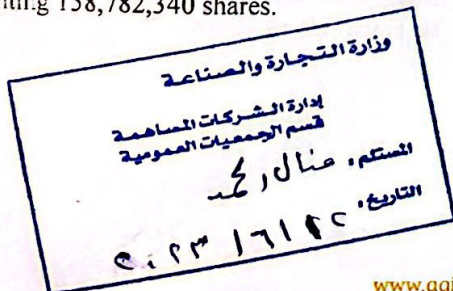 158,782,340 shares.
وزارة التجارة والصناعة
إدارة الشركات المساهمة
قسم الجمعيات العمومية
المستلم، منال
التاريخ، ٢٠٢٣/٦/٢٢
www.qqi